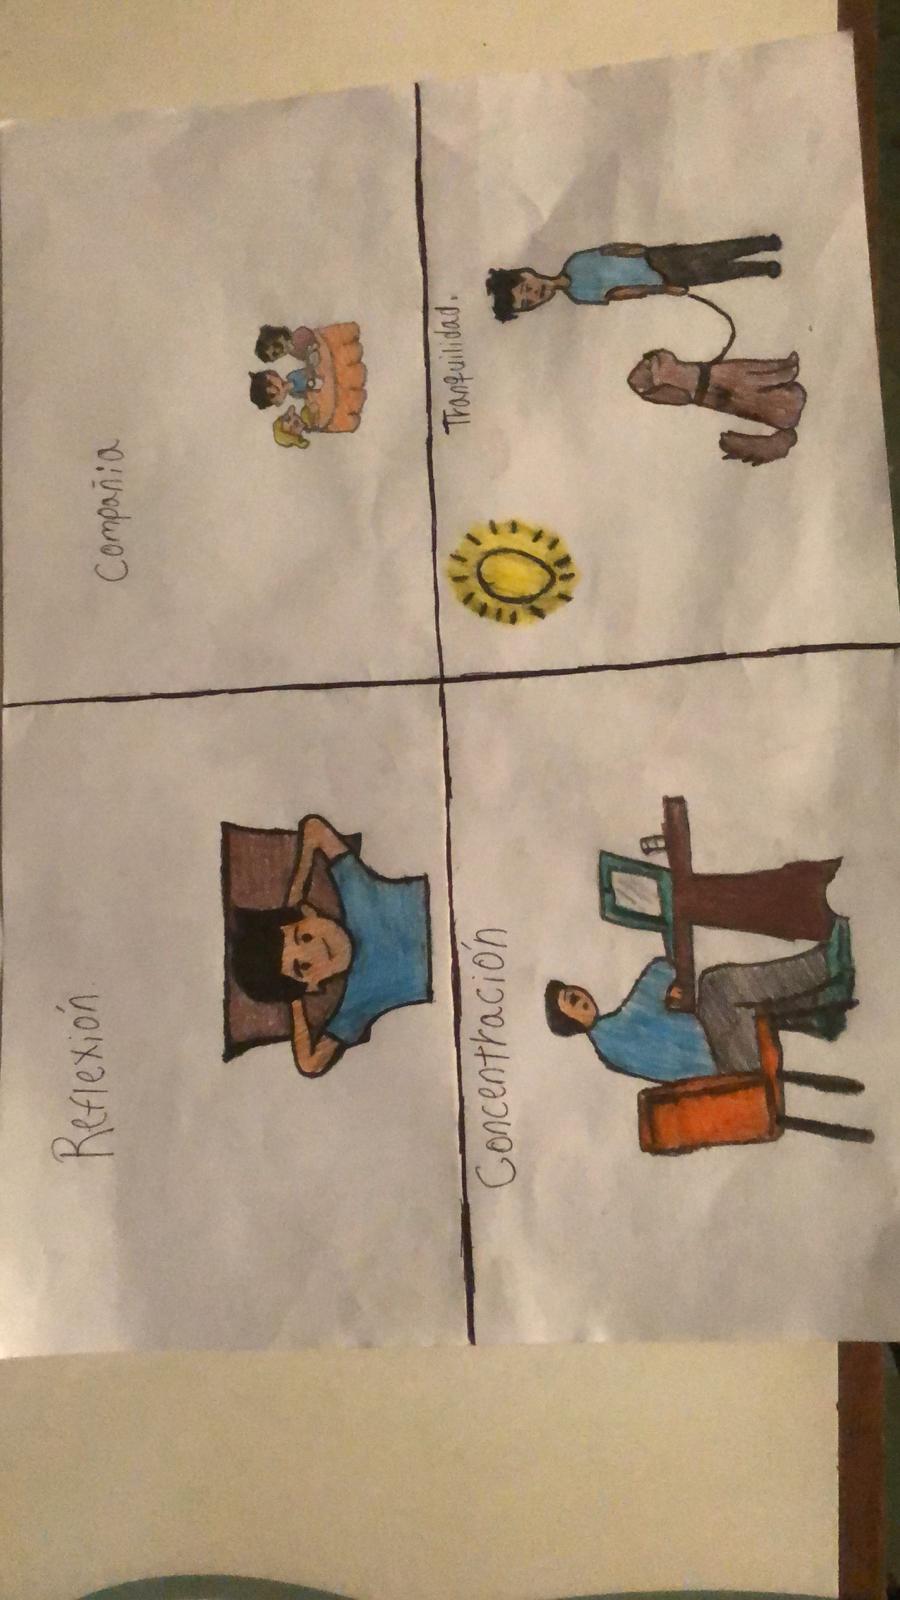 Reflexión.
Compañia
Concentración
Tranquilidad.